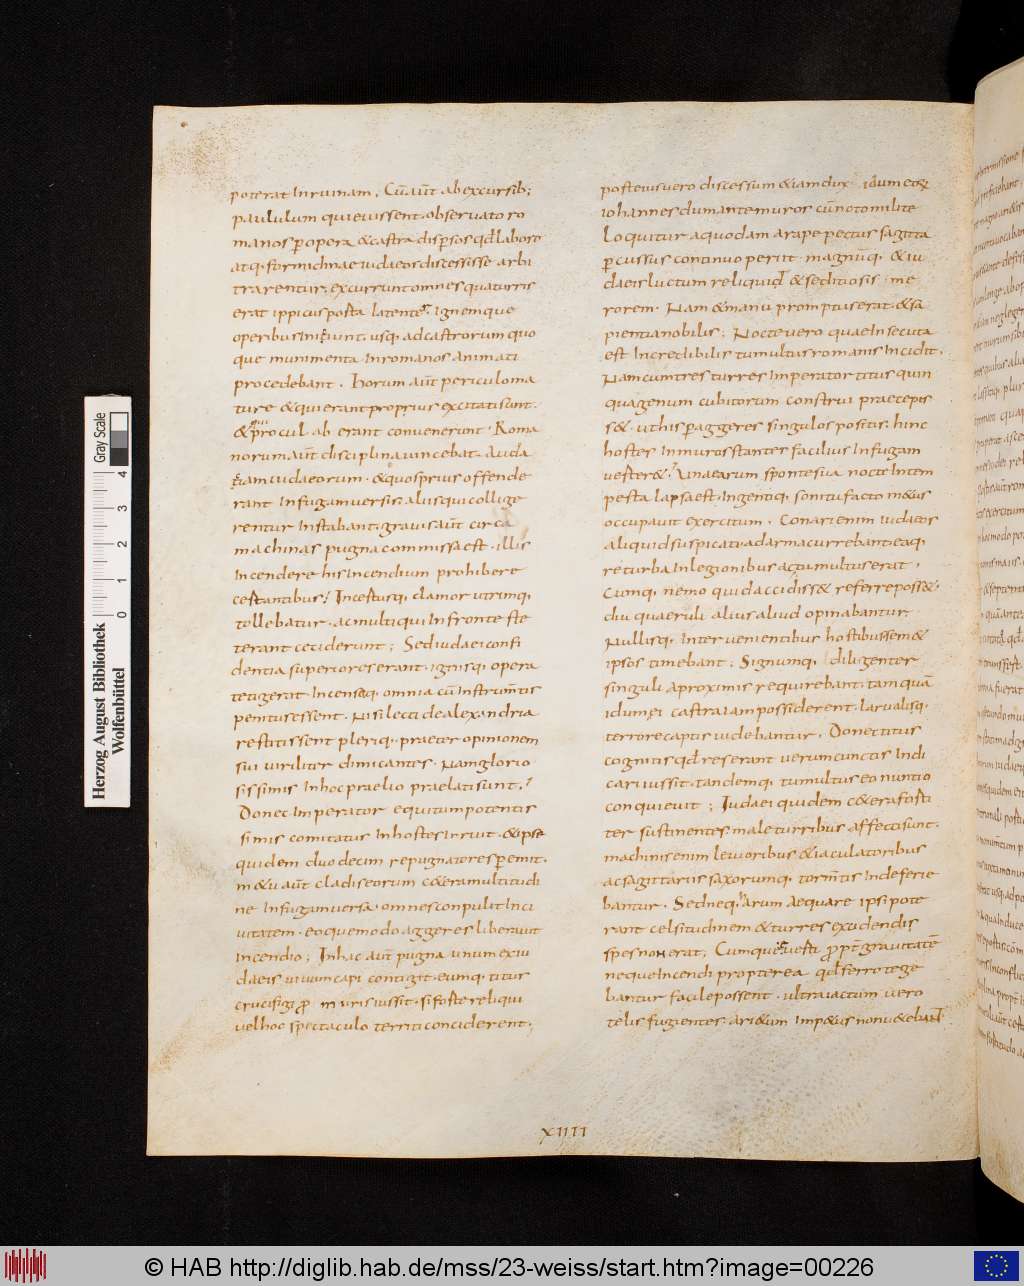 poterat Inruinam. Cū aūt abexcursib;
paululum quieuissent. obseruato ro
manos ꝑ opera &castra disꝑsos qđ labore
atq. formidinae iudaeos discessisse arbi
trarentur. excurrunt omnes qua turris
erat ippicus posta latentes. Ignemque
operibus Iniciunt. usq. ad castrorum quo
que munimenta. Inromanos animati
procedebant. Horum aūt periculo ma
ture &qui erant proprius excitati sunt.
&procul ab erant conuenerunt. Roma
norum aūt disciplina uincebat. Auda
ciam iudaeorum. &quos prius offende
rant Infugam uersis. aliis qui collige
rentur Instabant. grauis aūt circa
machinas pugna commissa est. illis
Incendere his Incendium prohibere
certantibus; Incertusq. clamor utrimq.
tollebatur. ac multi qui In fronte ste
terant ceciderunt; Sed iudaei confi
dentia superiores erant. ignisq. opera
tetigerat Incensaq. omnia cū Instrumtis
penitus essent. Nisi lecti de alexandria
restitissent pleriq. praeter opinionem
sui uiriliter dimicantes. Nam glorio
sissimis In hoc praelio praelati sunt.
Donec Imperator equitum potentis
simis comitatus In hostes Irruit. &ipse
quidem duodecim repugnatores ꝑemit.
m&u aūt cladis eorum c&era multitudi
ne Infugam uersa. omnes conpulit Inci
uitatem. eoque modo aggeres liberauit
Incendio; In hac aūt pugna unum ex iu
daeis uiuum capi contigit. eumq. titus
crucifigi pro muris iussit. si forte reliqui
uel hoc spectaculo territi conciderent;
post eius uero discessum &iam dux idumeoꝝ
iohannes dum ante muros cū noto milite
loquitur a quodam arape pectus sagitta
ꝑcussus continuo perit magnūq. & iu
daeis luctum reliquid & seditiosis me
rorem. Nam & manū promptus erat. & sa
pientia nobilis; Nocte uero quae Insecuta
est Incredibilis tumultus romanis Incidit.
Nam cum tres turres Imperator titus quin
quagenum cubitorum construi praecepis
s&. ut his ꝑ aggeres singulos positis. hinc
hostes In muros stantes facilius Infugam
uerter&. Una earum sponte sua nocte Intem
pesta lapsa est. Ingentiq. sonitu facto m&us
occupauit exercitum. Conari enim iudaeos
aliquid suspicati. ad arma currebant. eaq.
re turba In legionibus ac tumultus erat.
Cumq. nemo quid accidiss& referre poss&.
diu quaeruli alius aliud opinabantur.
Nullisq. Interuenientibus hostibus sem&
ipsos timebant; Signumq. diligenter
singuli a proximis requirebant. tamquā
idumei castra iam possiderent. laruatisq.
terrore captis uidebantur. Donec titus
cognitis qđ res erant uerum cunctis Indi
cari iussit. tandemq. tumultus eo nuntio
conquieuit; Iudaei quidem c&era forti
ter sustinentes male turribus affecti sunt.
machinis enim leuioribus &iaculatoribus
ac sagittariis saxorumq. tormtis Inde ferie
bantur. Sed neq. harum aequare ipsi pote
rant celsitudinem & turres excidendis
spes non erat; Cumque uerti ꝓpt grauitatē
neque Incendi propterea qđ ferro tege
bantur facile possent. ultra iactum uero
telis fugientes. ari&um Imp&us non u&ebant
XIIII
Herzog August Bibliothek
Wolfenbüttel
Gray Scale
0 1 2 3 4
© HAB http://diglib.hab.de/mss/23-weiss/start.htm?image=00226